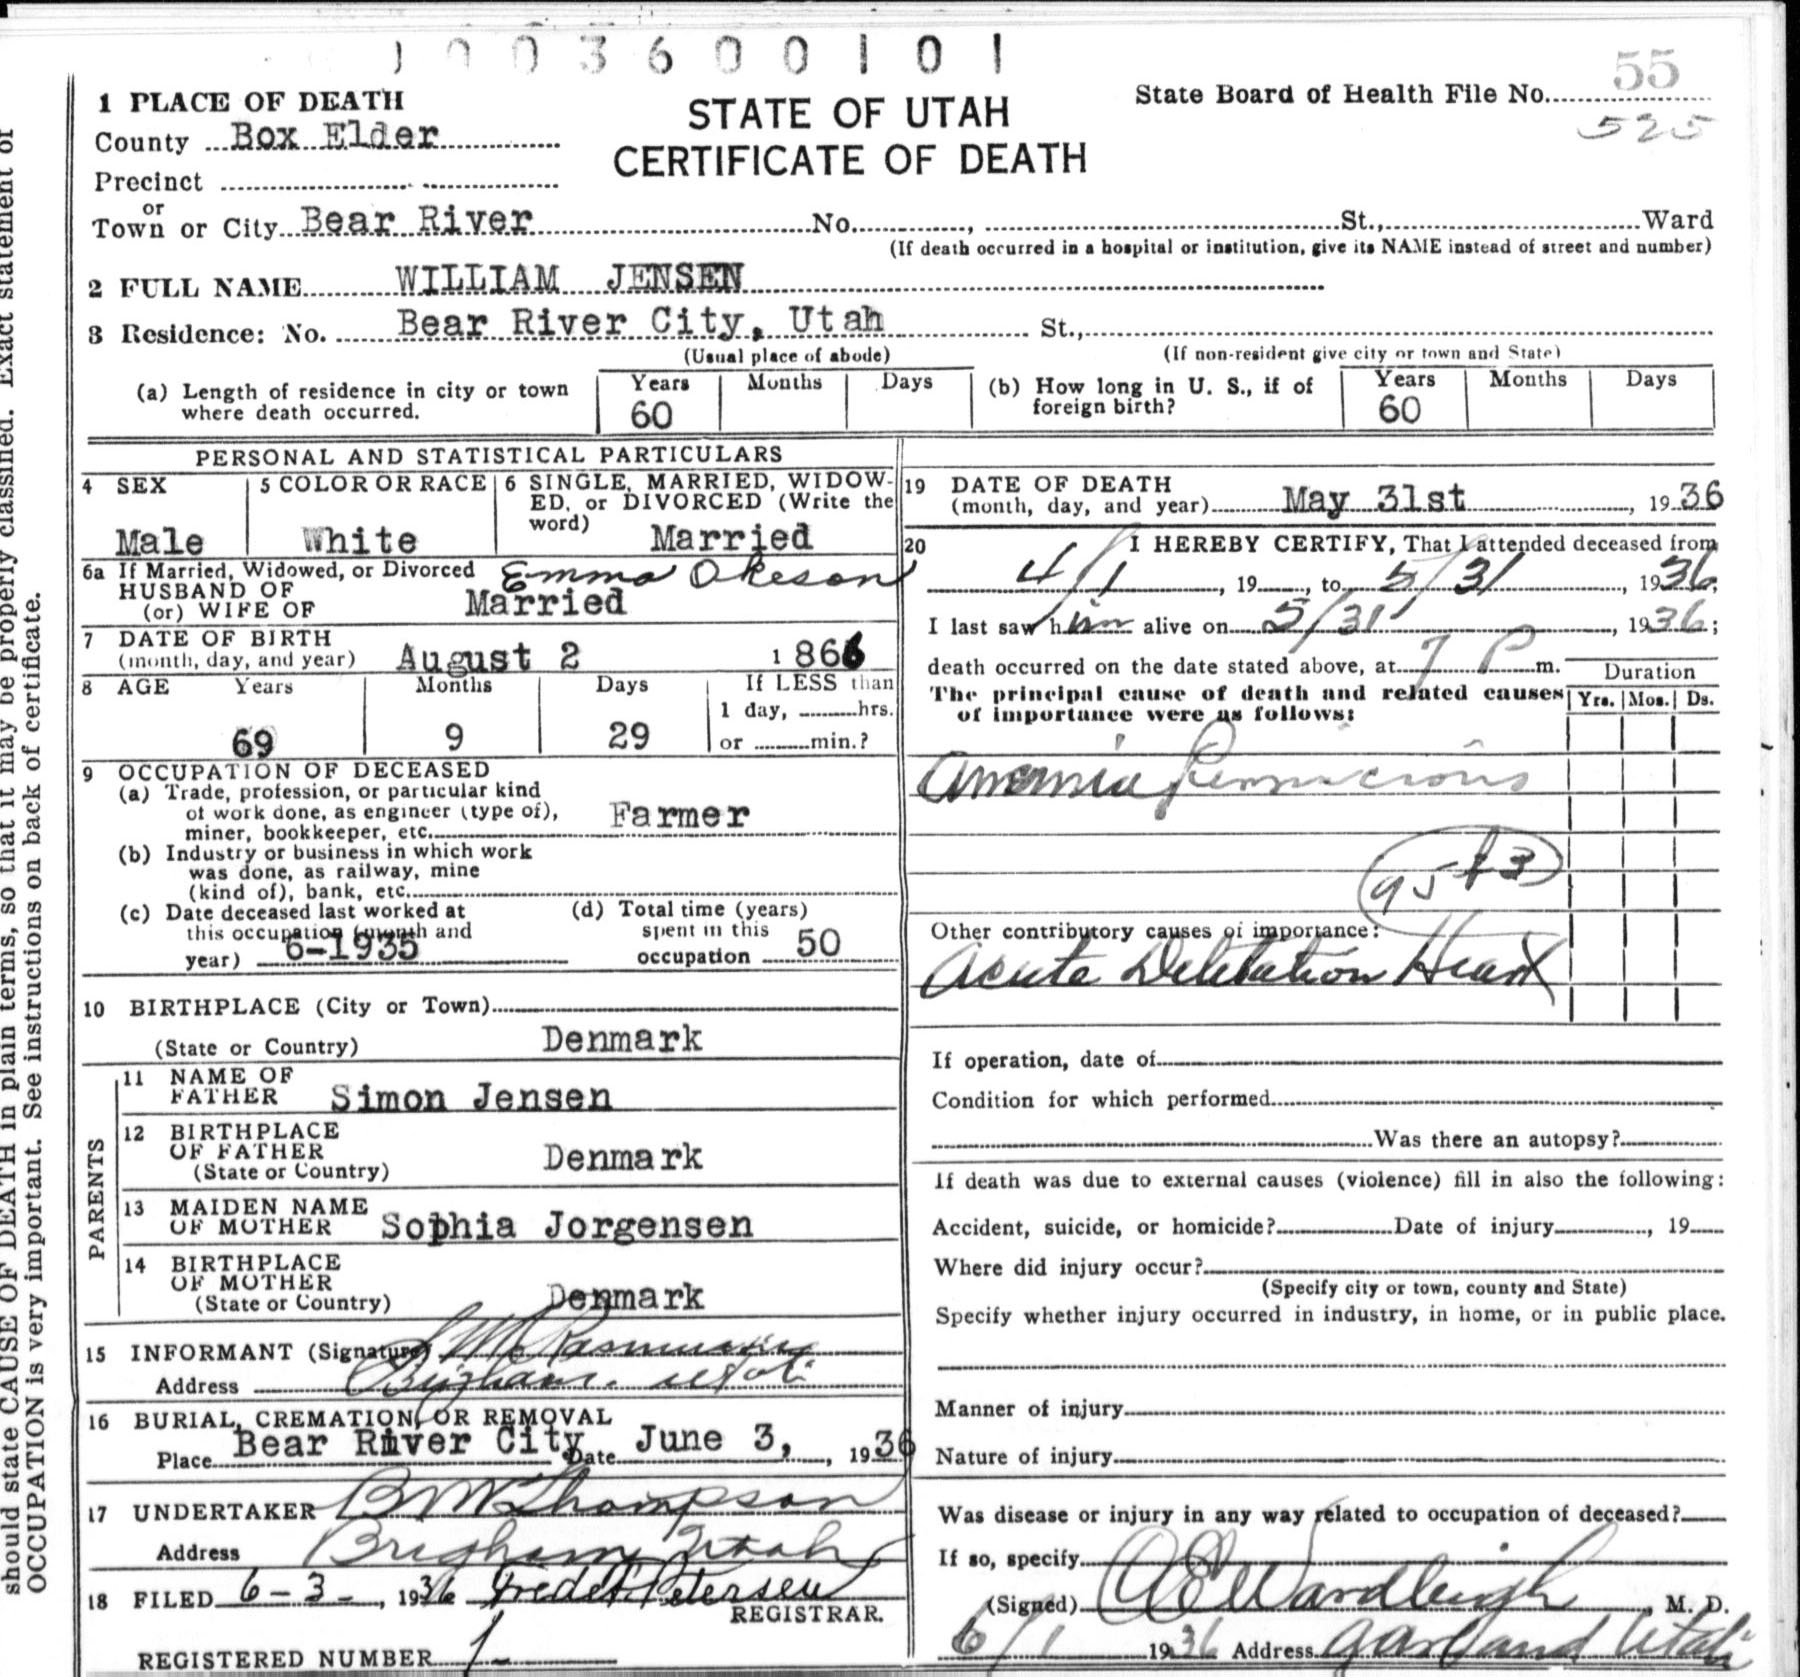 1003600101
55
State Board of Health File No.
525
STATE OF UTAH
CERTIFICATE OF DEATH
1 PLACE OF DEATH
County Box Elder
Precinct
or
Town or City Bear River No. , St., Ward
(If death occurred in a hospital or institution, give its NAME instead of street and number)
2 FULL NAME WILLIAM JENSEN
3 Residence: No. Bear River City, Utah St.,
(Usual place of abode) (If non-resident give city or town and State)
(a) Length of residence in city or town where death occurred. Years 60 Months Days
(b) How long in U. S., if of foreign birth? Years 60 Months Days
PERSONAL AND STATISTICAL PARTICULARS
4 SEX Male
5 COLOR OR RACE White
6 SINGLE, MARRIED, WIDOW-
ED, or DIVORCED (Write the
word) Married
6a If Married, Widowed, or Divorced Emma Okeson
HUSBAND OF
(or) WIFE OF Married
7 DATE OF BIRTH
(month, day, and year) August 2 1866
8 AGE Years Months Days If LESS than
1 day, hrs.
69 9 29 or min.?
9 OCCUPATION OF DECEASED
(a) Trade, profession, or particular kind
of work done, as engineer (type of),
miner, bookkeeper, etc. Farmer
(b) Industry or business in which work
was done, as railway, mine
(kind of), bank, etc.
(c) Date deceased last worked at
this occupation (month and
year) 6-1935
(d) Total time (years)
spent in this
occupation 50
10 BIRTHPLACE (City or Town)
(State or Country) Denmark
PARENTS
11 NAME OF
FATHER Simon Jensen
12 BIRTHPLACE
OF FATHER
(State or Country) Denmark
13 MAIDEN NAME
OF MOTHER Sophia Jorgensen
14 BIRTHPLACE
OF MOTHER
(State or Country) Denmark
15 INFORMANT (Signature) M Rasmussen
Address Brigham. Utah
16 BURIAL, CREMATION, OR REMOVAL
Place Bear River City Date June 3, , 1936
17 UNDERTAKER BM Thompson
Address Brigham, Utah
18 FILED 6-3- , 1936 Petersen
REGISTRAR.
REGISTERED NUMBER 1-
19 DATE OF DEATH
(month, day, and year) May 31st , 1936
20 I HEREBY CERTIFY, That I attended deceased from
4/1 , 19 , to 5/31 , 1936;
I last saw him alive on 5/31 , 1936;
death occurred on the date stated above, at 7 P m.
Duration
Yrs. Mos. Ds.
The principal cause of death and related causes
of importance were as follows:
Anemia Pernicious
Other contributory causes of importance:
Acute Dilitation Heart
If operation, date of
Condition for which performed
Was there an autopsy?
If death was due to external causes (violence) fill in also the following:
Accident, suicide, or homicide? Date of injury , 19
Where did injury occur?
(Specify city or town, county and State)
Specify whether injury occurred in industry, in home, or in public place.
Manner of injury
Nature of injury
Was disease or injury in any way related to occupation of deceased?
If so, specify
(Signed) Wardleigh , M. D.
6/1 1936 Address Garland Utah
should state CAUSE OF DEATH in plain terms, so that it may be properly classified. Exact statement of
OCCUPATION is very important. See instructions on back of certificate.